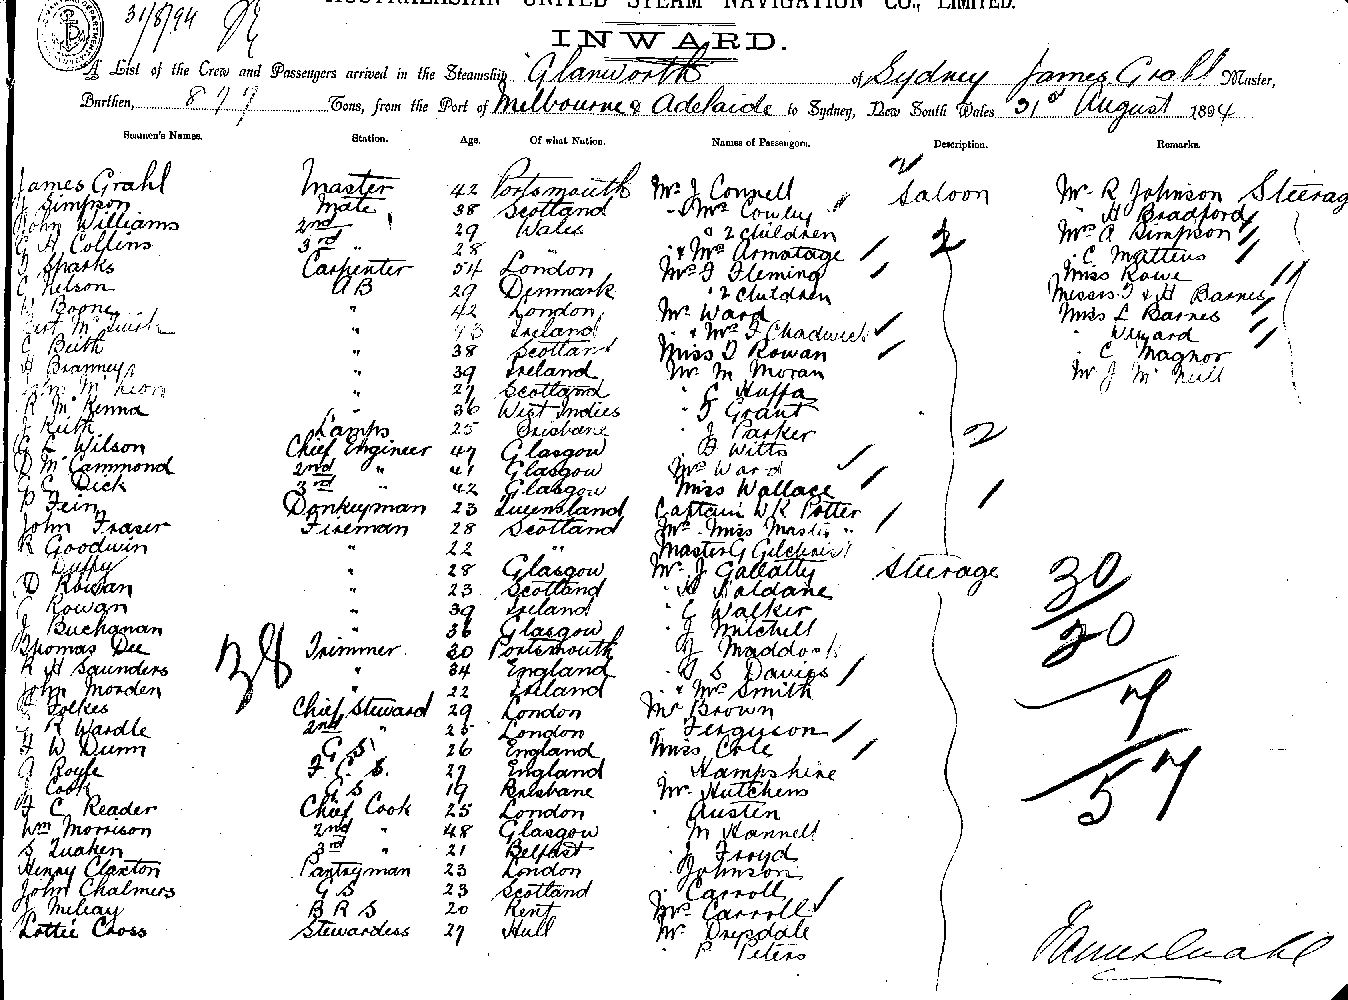 AUSTRALASIAN UNITED STEAM NAVIGATION CO., LIMITED.
31/8/94
INWARD.
A List of the Crew and Passengers arrived in the Steamship Glanworth of Sydney James Grahl Master,
Burthen, 877 Tons, from the Port of Melbourne & Adelaide to Sydney, New South Wales 31st August 1894
Seamen's Names. Station. Age. Of what Nation. Names of Passengers. Description. Remarks.
James Grahl Master 42 Portsmouth Mr J Connell Saloon Mr R Johnson Steerag
J Simpson Mate 38 Scotland " & Mrs Cowley H Bradford
John Williams 2nd " 29 Wales " 2 children Mrs A Simpson
G H Collins 3rd " 28 " " & Mrs Armatage 2 " C Mattens
J Sparks Carpenter 54 London Mrs F Fleming Miss Rowe
C Nelson AB 29 Denmark " 2 children Messrs J & H Barnes
Boone " 42 London Mr Ward Miss L Barnes
" 43 Ireland " & Mrs J Chadwick
C Beith " 38 Scotland Miss D Rowan " C Magnor
H Branney " 39 Ireland Mr M Moran Mr J McNeill
" 27 Scotland " C Huffa
R McKenna " 36 West Indies " F Grant
J Keith Lamps 25 Brisbane " J Parker 2
G L Wilson Chief Engineer 47 Glasgow " B Witts
D McCammond 2nd " 41 Glasgow Mrs Ward
G C Dick 3rd " 42 Glasgow Miss Wallace
P Fein Donkeyman 23 Queensland Captain W R Potter
John Fraser Fireman 28 Scotland Mrs Miss Master "
R Goodwin " 22 " Master G Gilchrist
Duffy " 28 Glasgow Mr J Gallatty Steerage 30
D Rowan " 23 Scotland " H Haldane
J Rowan " 39 Ireland " C Walker
J Buchanan " 36 Glasgow " J Mitchell 20
Thomas Dee 38 Trimmer 30 Portsmouth " J Maddock
R H Saunders " 34 England " G S Davies
John Morden " 22 Ireland " & Mrs Smith 7
Folkes Chief Steward 29 London Mr Brown
R Wardle 2nd " 25 London " Ferguson
F W Dunn G S 26 England Miss Cole
J Royle F C S. 27 England " Hampshire 57
J Cook G S 19 Brisbane Mr Hutchens
F C Reader Chief Cook 25 London " Austen
Wm Morrison 2nd " 48 Glasgow " M Hannell
S Quaken 3rd " 21 Belfast " J Froyd
Henry Claxton Pantryman 23 London " Johnson
John Chalmers G S 23 Scotland " Carroll
J Mileay B R S 20 Kent Mrs Carroll
Lottie Cross Stewardess 27 Hull Mr Drysdale
" P Peters
James Grahl